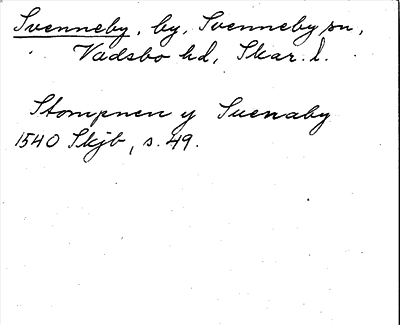 Svenneby, by, Svenneby sn,
Vadsbo hd, Skar. l.
Stompnen y Suenaby
1540 Skjb, s. 49.